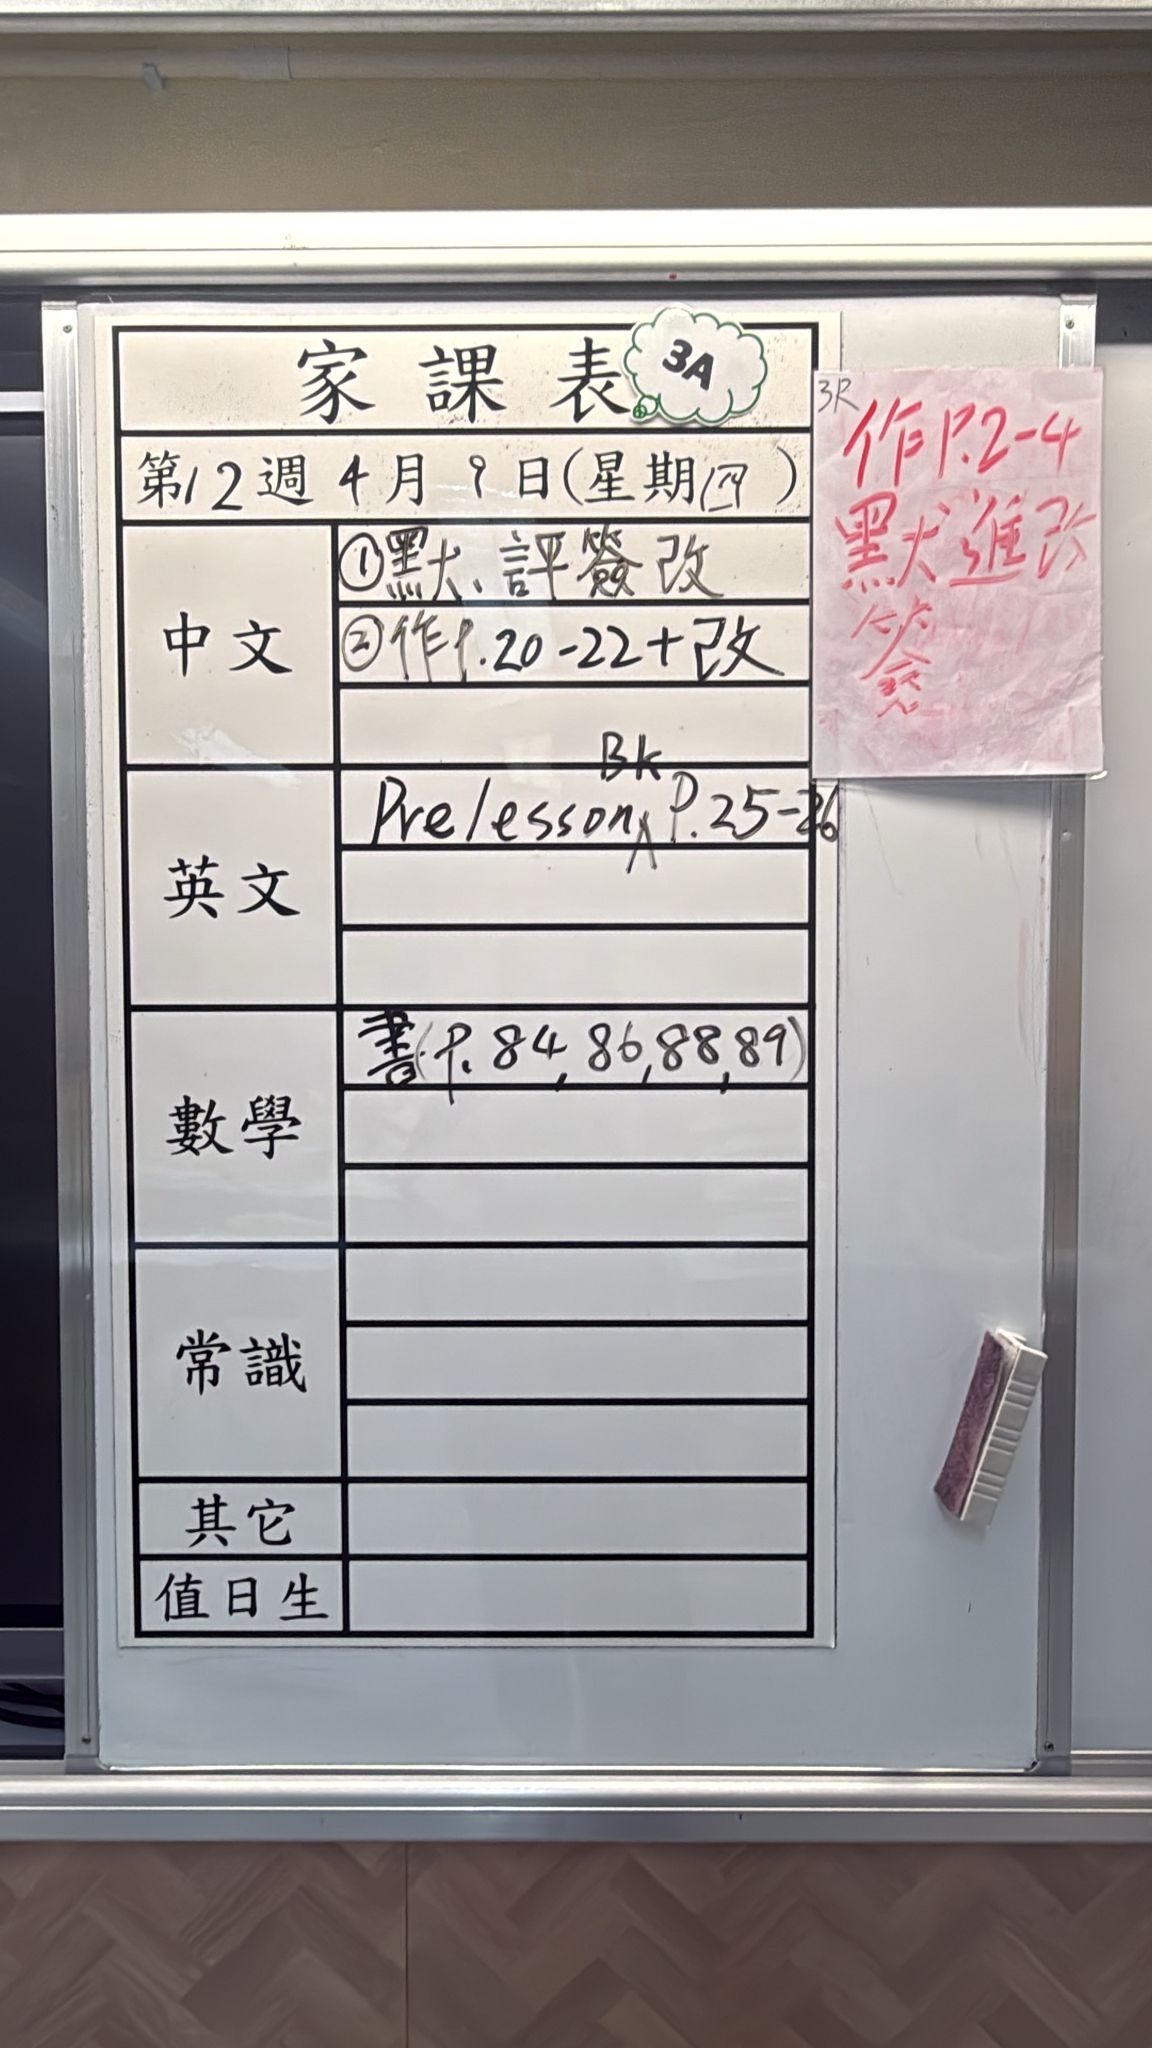 家課表
3A
第12週 4月9日(星期四)
中文
①默、評簽改
②作P.20-22+改
英文
Prelesson Bk P.25-26
數學
書(P.84,86,88,89)
常識
其它
值日生
3R
作P.2-4
默進改
簽